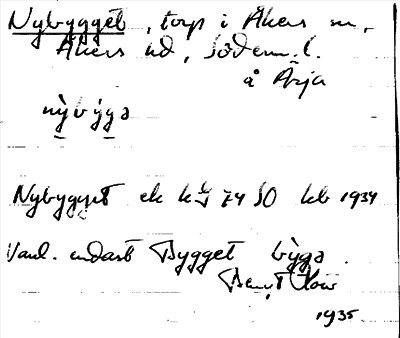 Nybygget, torp i Åkers sn,
Åkers hd, Söderm. l.
å Ärja
nỳbýgə
Nybygget ek kbl 74 SO kb 1934
Vanl. endast Bygget býgə.
Bengt
1935